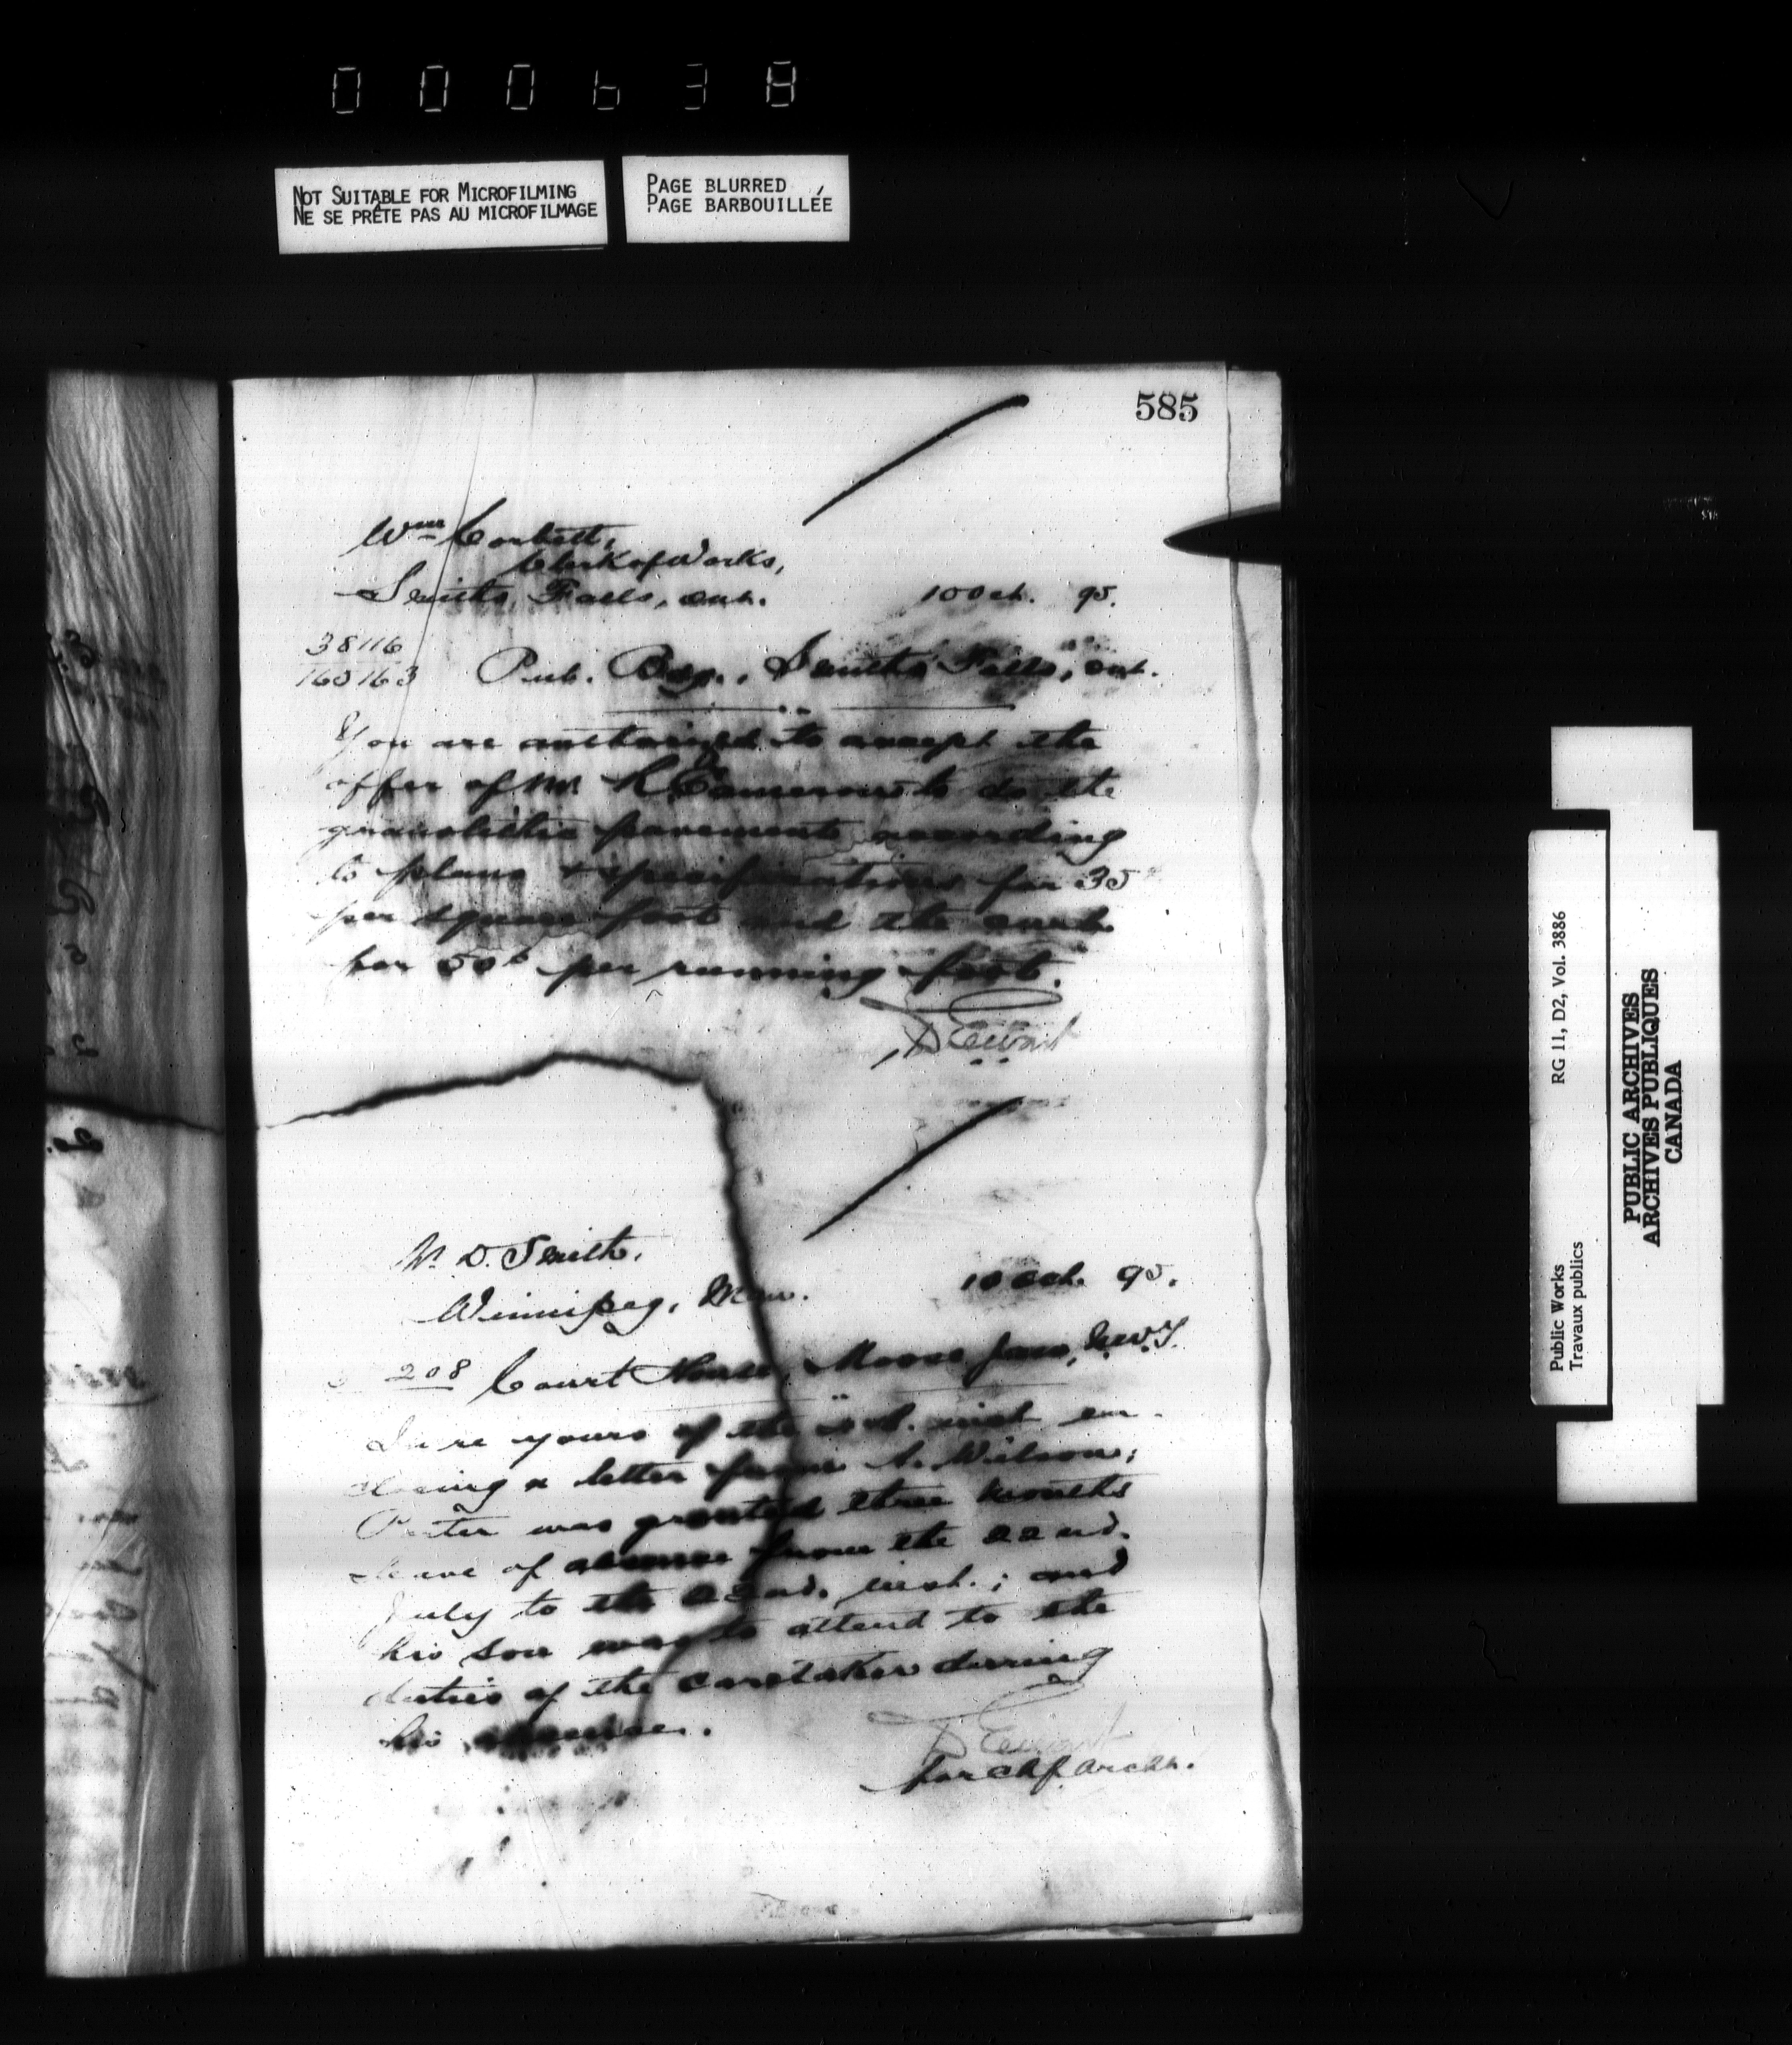 000638
NOT SUITABLE FOR MICROFILMING
NE SE PRÊTE PAS AU MICROFILMAGE
PAGE BLURRED
PAGE BARBOUILLÉE
585
Wm Corbett,
Clerk of Works,
Smiths Falls, Ont.
10 Oct. 95.
38116
165163
Pub. Bdg., Smiths Falls, Ont.
You are authorized to accept the
offer of Mr. Cameron to do the
granolithic pavements according
to plans & specifications for 35
per square foot and the curb
for 50c per running foot.
D Ewart
W. D. Smith,
Winnipeg, Man.
10 Oct. 95.
208 Court House, Moose Jaw, N.W.T.
In re yours of the inst en-
closing a letter from A. Wilson;
was granted three months
leave of absence from the 22nd.
July to the 22nd. inst.; and
his son was to attend to the
duties of the caretaker during
his absence.
D Ewart
for chf. archt.
Public Works
Travaux publics
RG 11, D2, Vol. 3886
PUBLIC ARCHIVES
ARCHIVES PUBLIQUES
CANADA